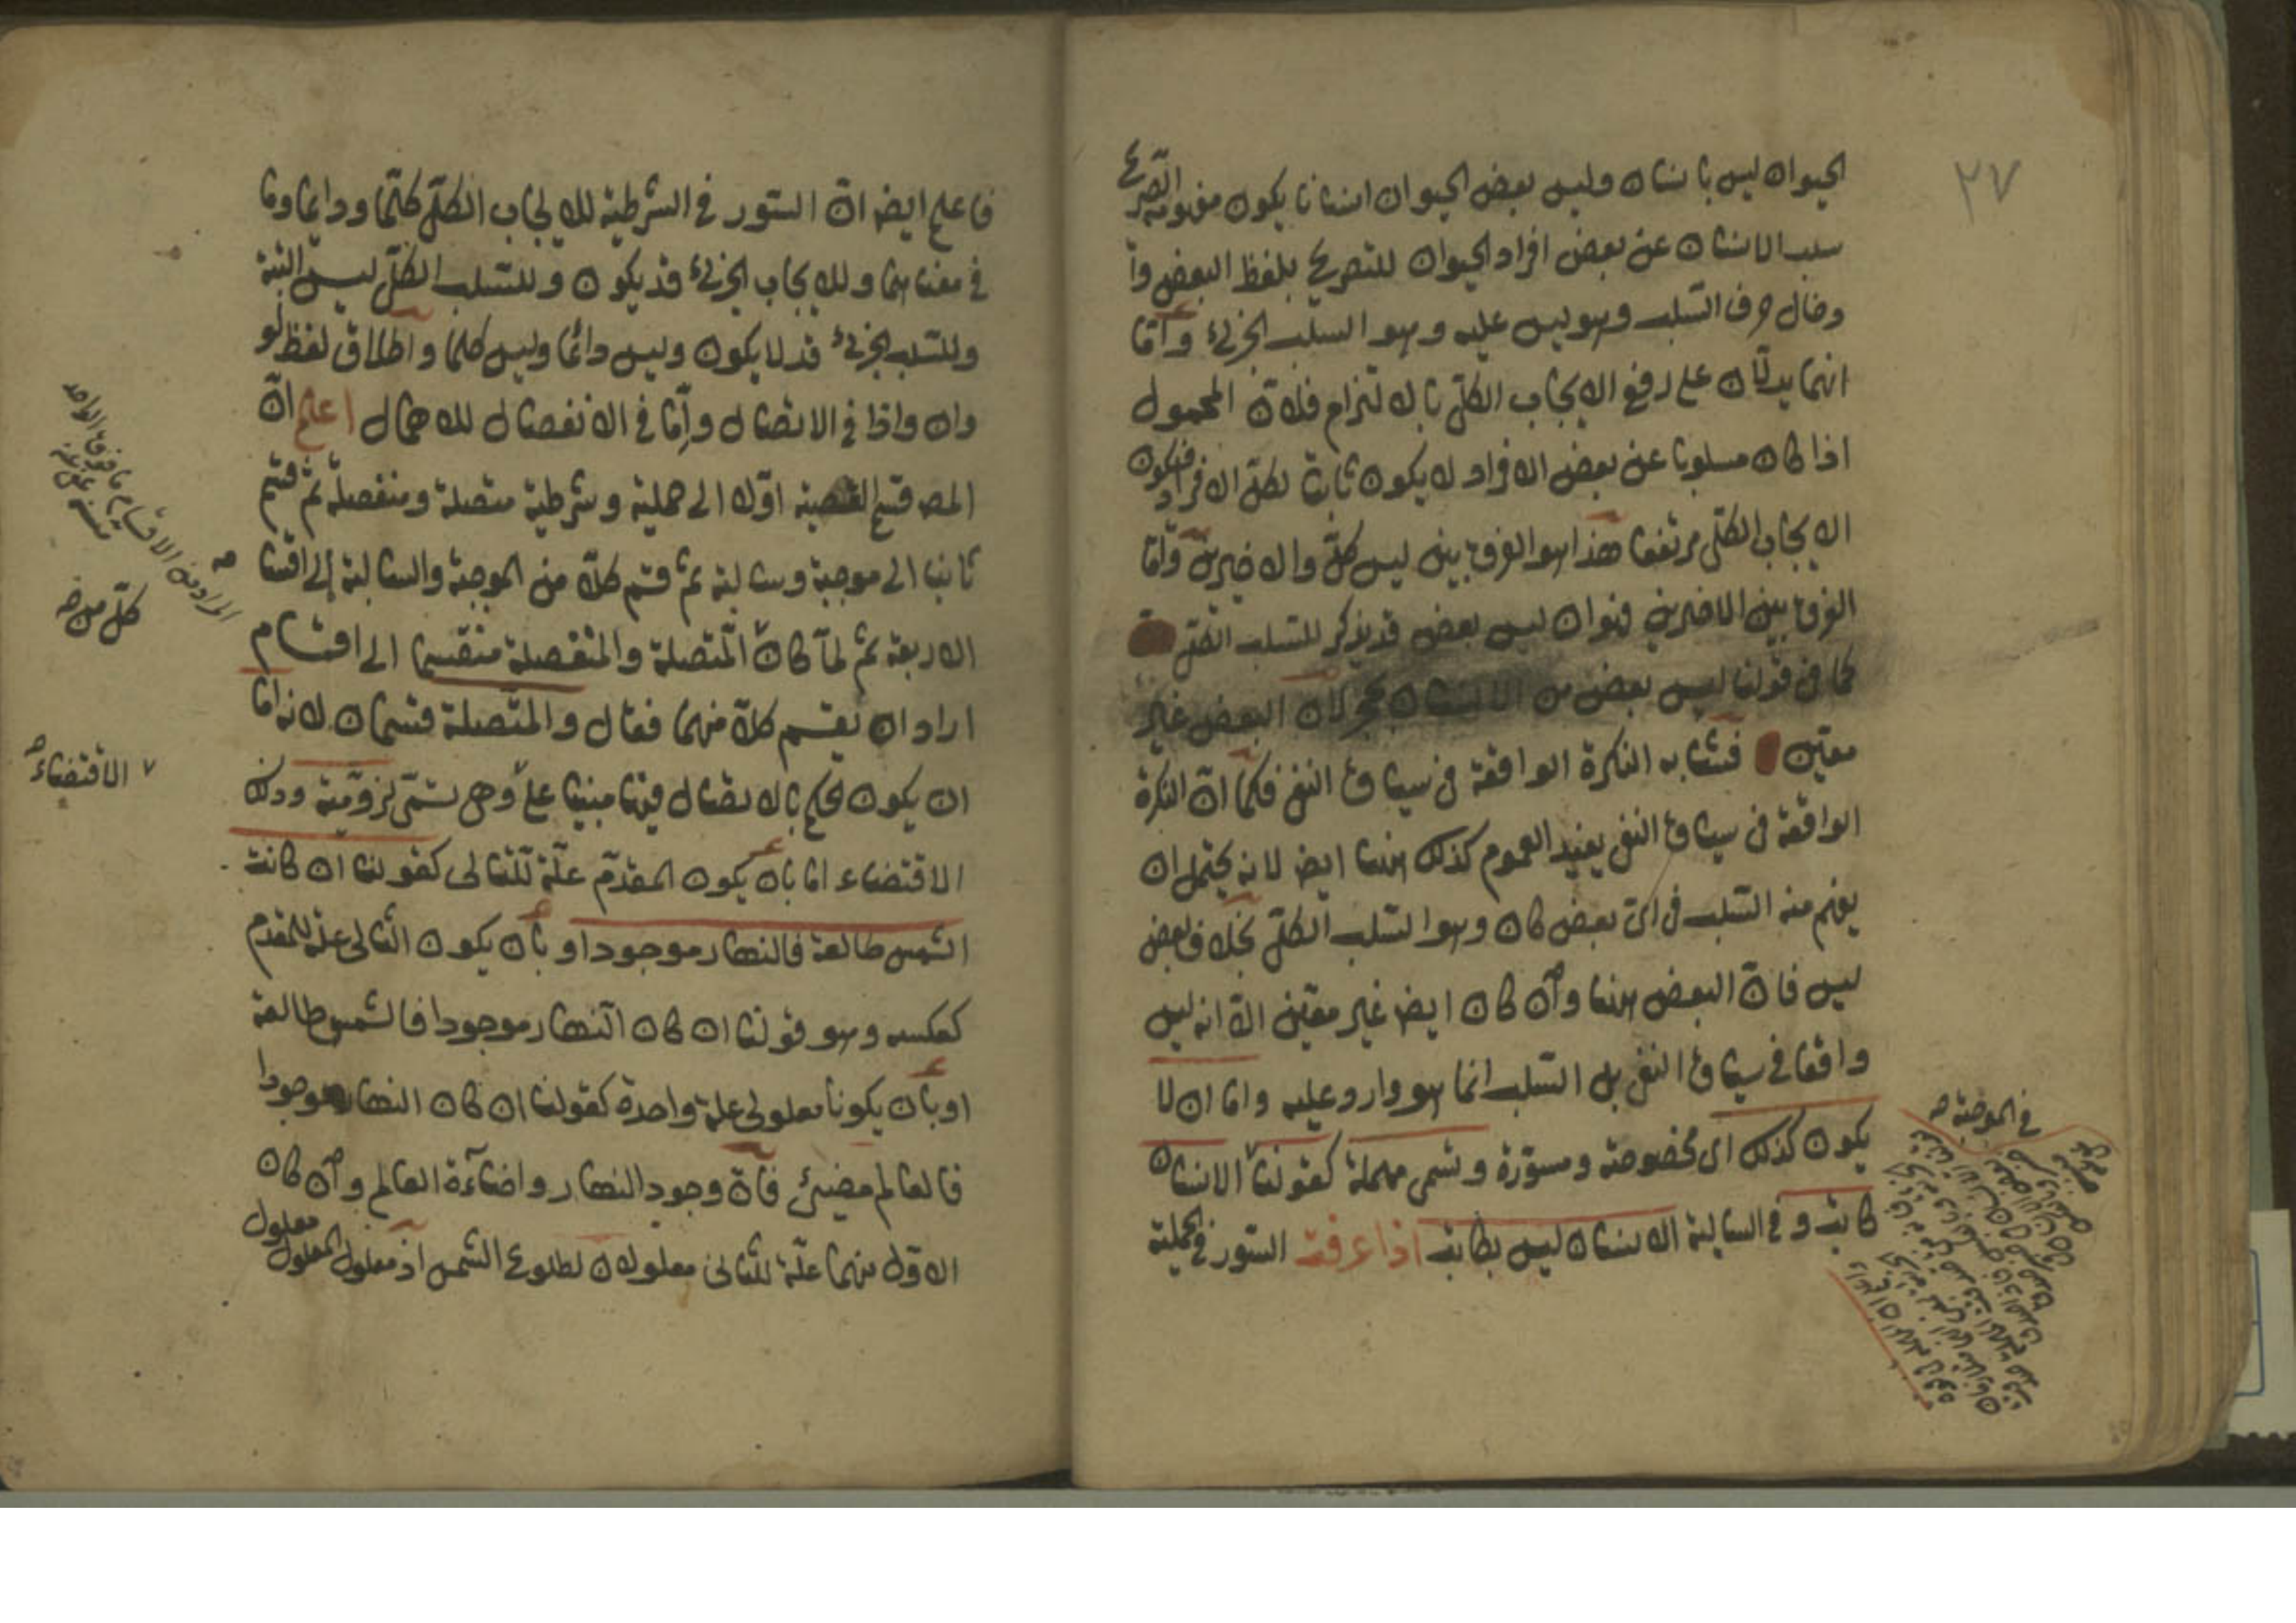 ٢٧
الحيوان ليس بانسان وليس بعض الحيوان انسانا يكون مفهومه الصريح
سلب الانسان عن بعض افراد الحيوان للتصريح بلفظ البعض وا
دخال حرف السلب وهو ليس عليه وهو السلب الجزئي واما
انهما يدلان على رفع الايجاب الكلي بالالتزام فلان المحمول
اذا كان مسلوبا عن بعض الافراد لا يكون ثابتا لكل الافراد فيكون
الايجاب الكلي مرتفعا هذا هو الفرق بين ليس كل والاخيرين واما
الفرق بين الاخيرين فهو ان ليس بعض قد يذكر للسلب الكلي
كما في قولنا ليس بعض من الانسان بحجر لان البعض غير
معين فشابه النكرة الواقعة في سياق النفي فكما ان النكرة
الواقعة في سياق النفي يفيد العموم كذلك هنا ايض لانه يحتمل ان
يفهم منه السلب في اى بعض كان وهو السلب الكلي بخلاف بعض
ليس فان البعض هنا وان كان ايض غير معين الا انه ليس
واقعا في سياق النفي بل السلب انما هو وارد عليه واما ان لا
يكون كذلك اى مخصوصة ومسورة وتسمى مهملة كقولنا الانسان
كاتب و في السالبة الانسان ليس بكاتب اذا عرفت السور في الحملية
في الموجبة صح
فاعلم ايض ان السور في الشرطية للايجاب الكلي كلما ودائما وما
في معناهما وللايجاب الجزئي قد يكون وللسلب الكلي ليس البتة
وللسلب الجزئي قد لا يكون وليس دائما وليس كلما واطلاق لفظ لو
وان واذا في الاتصال واما في الانفصال للاهمال اعلم ان
المص قسم القضية اولا الى حملية وشرطية متصلة ومنفصلة ثم قسم
ثانيا الى موجبة وسالبة ثم قسم كلا من الموجبة والسالبة الى اقسا
الاربعة ثم لما كان المتصلة والمنفصلة منقسما الى اقسام
اراد ان يقسم كلا منهما فقال والمتصلة قسمان لانه اما
ان يكون الحكم بالاتصال فيها مبنيا على وهى تسمى لزومية وذلك
الاقتضاء اما بان يكون المقدم علة للتالى كقولنا ان كانت
الشمس طالعة فالنهار موجود او بان يكون التالى علة للمقدم
كعكسه وهو قولنا ان كان النهار موجودا فالشمس طالعة
او بان يكونا معلولى علة واحدة كقولنا ان كان النهار موجودا
فالعالم مضيئ فان وجود النهار واضاءة العالم وان كان
الاول منهما علة للثانى معلولان لطلوع الشمس اذ معلول المعلول معلول
المراد من الاقسام ما فوق الواحد
الاقتضاء صح